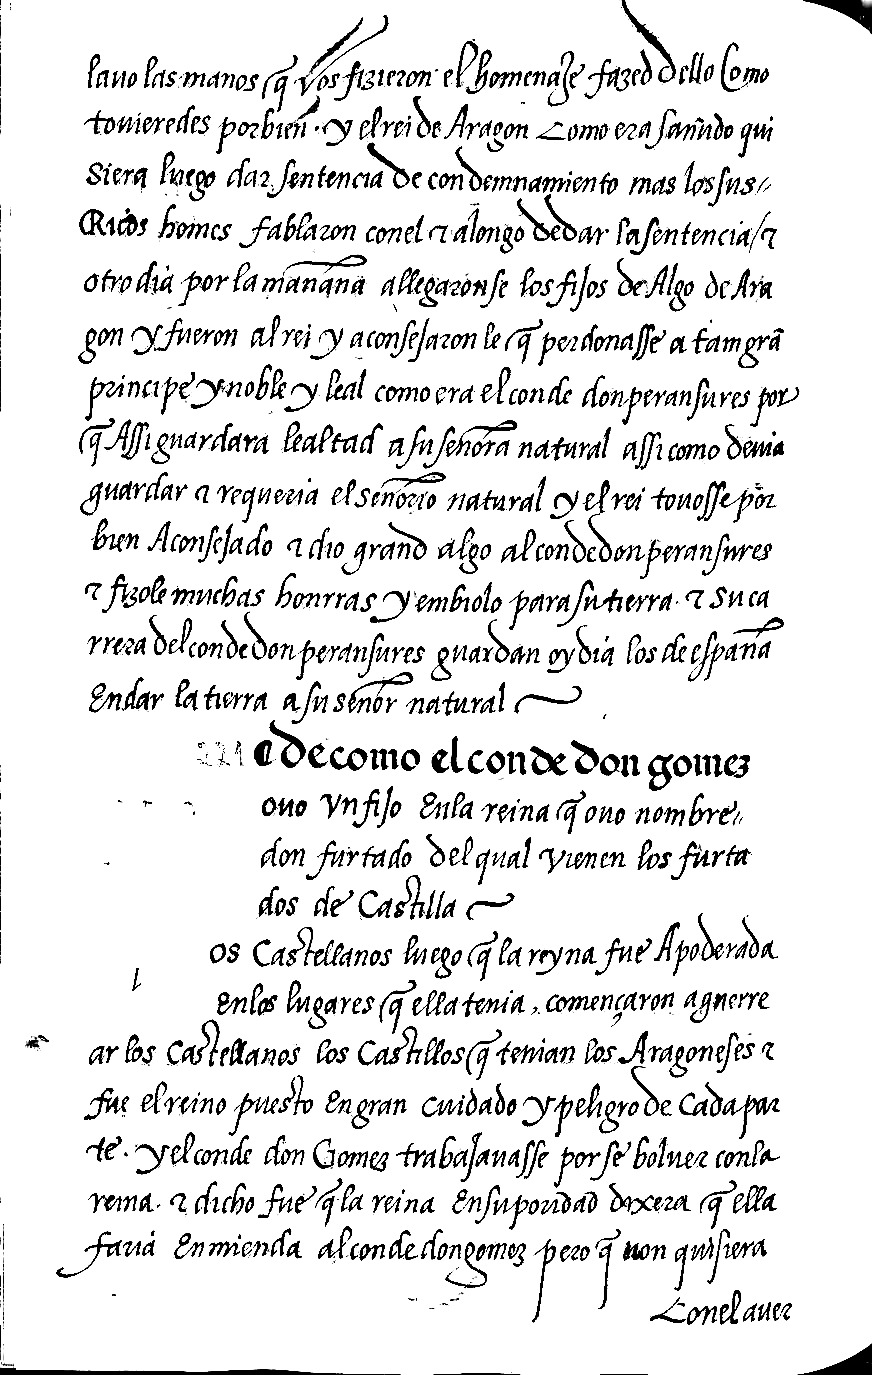 lauo las manos q̃ vos fizieron el homenaje fazed dello Como
touieredes por bien̄. y el rei de Aragon Como era sañudo qui
siera luego dar sentencia de condemnamiento mas los sus
Ricos homes fablaron con el τ alongo de dar la sentencia / τ
otro dia por la mañana allegaronse los fijos de Algo de Ara
gon y fueron al rei y aconsejaron le q̃ perdonasse a tam grã
principe y noble y leal como era el conde don peransures por
q̃ Assi guardara lealtad a su señora natural assi como deuia
guardar τ requeria el señorio natural y el rei touosse por
bien Aconsejado τ dio grand algo al conde don peransures
τ fizole muchas honrras y embiolo para su tierra. τ su ca
rrera del conde don peransures guardan oy dia los de españa
En dar la tierra a su señor natural
221 de como el conde don gomez
ouo vn fijo En la reina q̃ ouo nombre
don furtado del qual vienen los furta
dos de Castilla
os Castellanos luego q̃ la reyna fue Apoderada
l En los lugares q̃ ella tenia, començaron a guerre
ar los Castellanos los Castillos q̃ tenian los Aragoneses τ
fue el reino puesto En gran cuidado y peligro de Cada par
te. y el conde don Gomez trabajauasse por se boluer con la
reina. τ dicho fue q̃ la reina En su poridad dixera q̃ ella
faria Enmienda al conde don gomez pero q̃ non quisiera
Con el auer